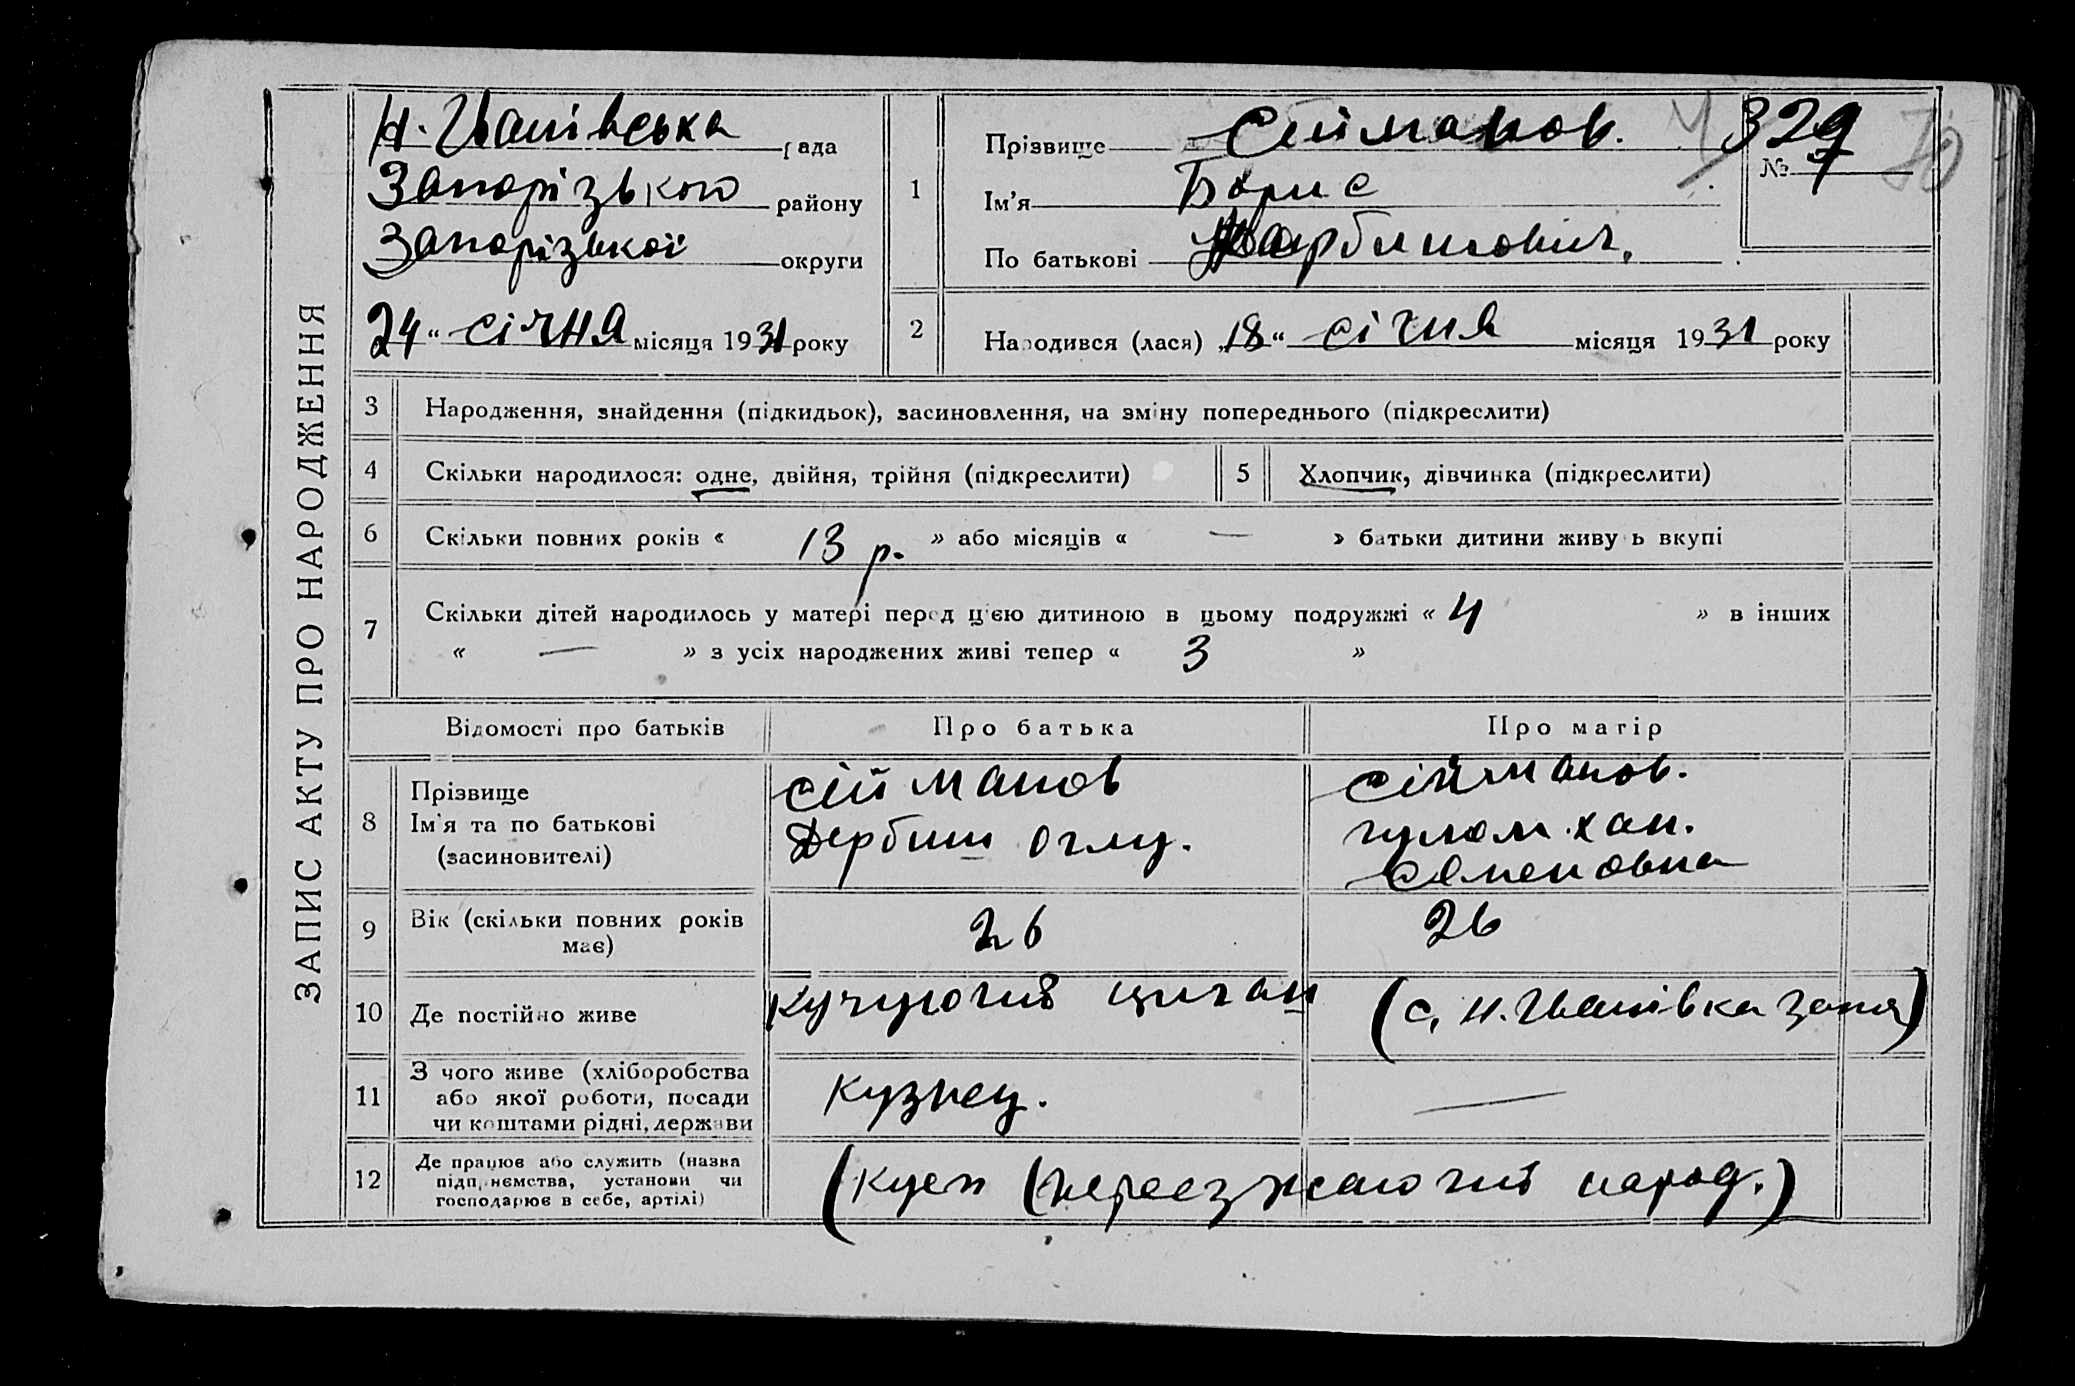 ЗАПИС АКТУ ПРО НАРОДЖЕННЯ
Н. Іванівська рада
Запорізького району
Запорізької округи
24 " січня місяця 1931 року
1
Прізвище Сейманов.
Ім'я Борис
По батькові
№ 7 329
70
2
Народився (лася) „18 " січня місяця 1931 року
3 Народження, знайдення (підкидьок), засиновлення, на зміну попереднього (підкреслити)
4 Скільки народилося: одне, двійня, трійня (підкреслити)
5 Хлопчик, дівчинка (підкреслити)
6 Скільки повних років « 13 р. » або місяців « — » батьки дитини живуть вкупі
7 Скільки дітей народилось у матері перед цією дитиною в цьому подружжі « 4 » в інших
« — » з усіх народжених живі тепер « 3 »
Відомості про батьків Про батька Про матір
8 Прізвище
Ім'я та по батькові
(засиновителі)
Сейманов
Дербиш Оглу.
Сейманов.
гулом. хан.
Семеновна
9 Вік (скільки повних років має)
26
26
10 Де постійно живе
Кучуючий циган (с. Н. Іванівка Запор)
11 З чого живе (хліборобства
або якої роботи, посади
чи коштами рідні, держави
Кузнец.
—
12 Де працює або служить (назва
підприємства, установи чи
господарює в себе, артілі)
(переезжающий народ.)